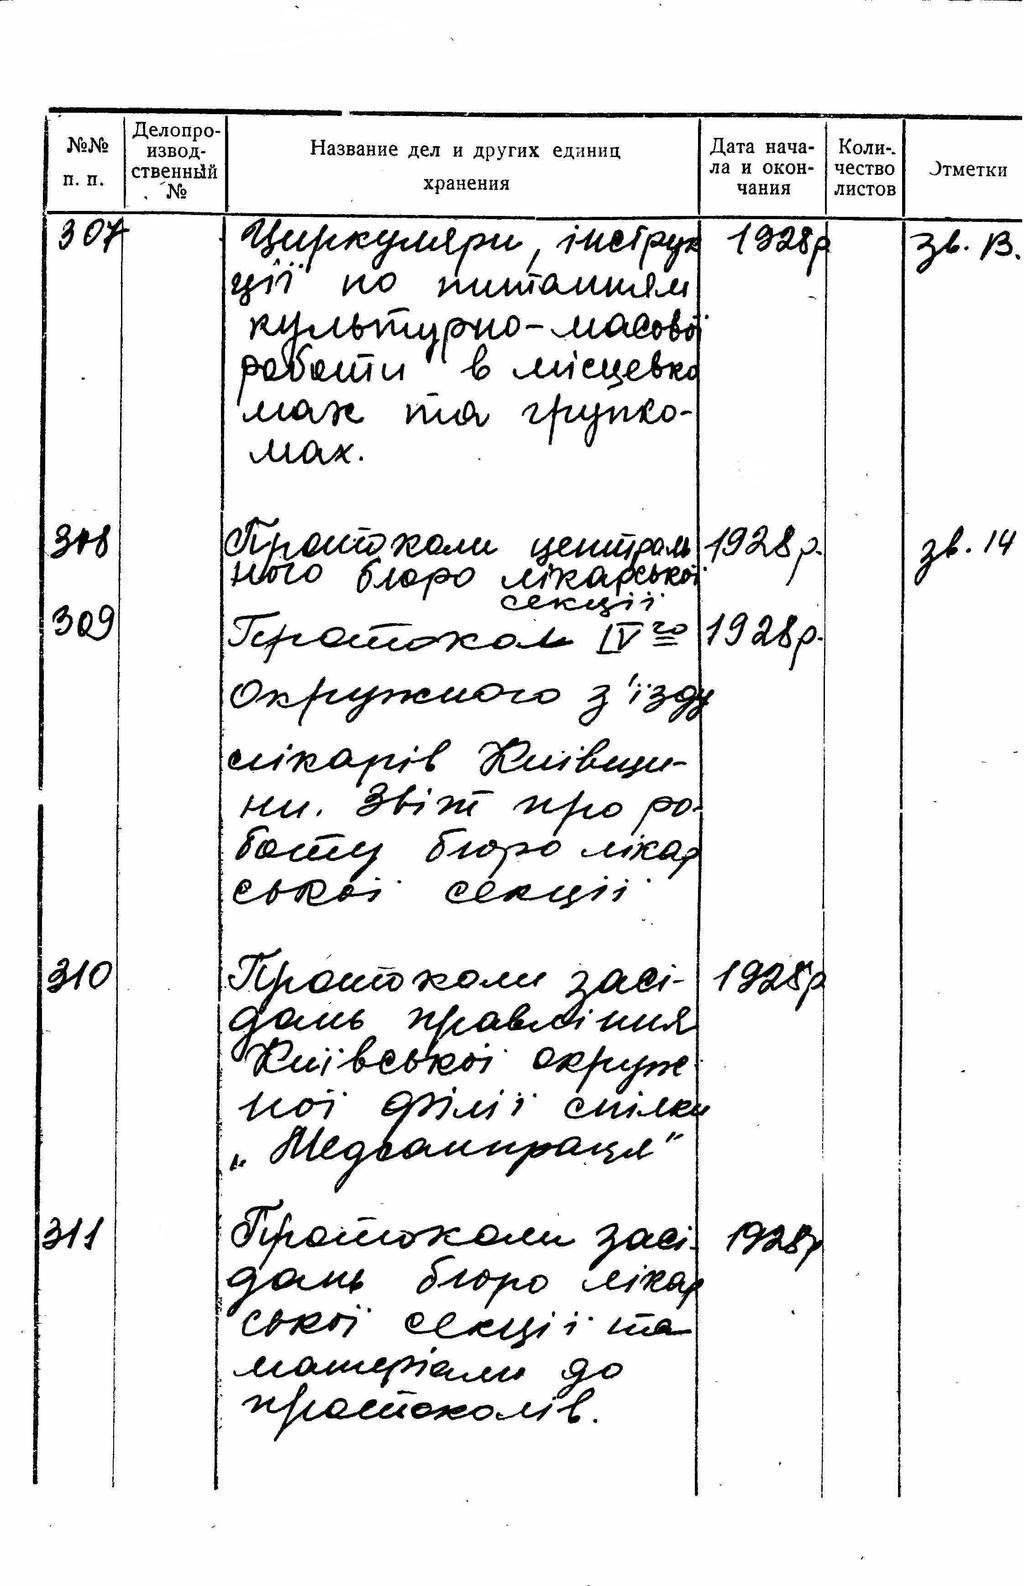 №№ п. п.
Делопроизводственный №
Название дел и других единиц хранения
Дата начала и окончания
Количество листов
Отметки
307 Циркуляри, інструк 1928р зв. 13.
ції по питанням
культурно-масової
работи в місцевко
мах та групко-
мах.
308 Протоколи централь 1928р. зв. 14
ного бюро лікарської
секції
309 Протокол IVго 1928р.
Окружного з'їзду
лікарів Київщи-
ни. Звіт про ро-
боту бюро лікар
ської секції
310 Протоколи засі- 1928р
дань правління
Київської окруж
ної філії спілки
„Медсанпраця"
311 Протоколи засі- 1928р
дань бюро лікар
ської секції та
матеріали до
протоколів.